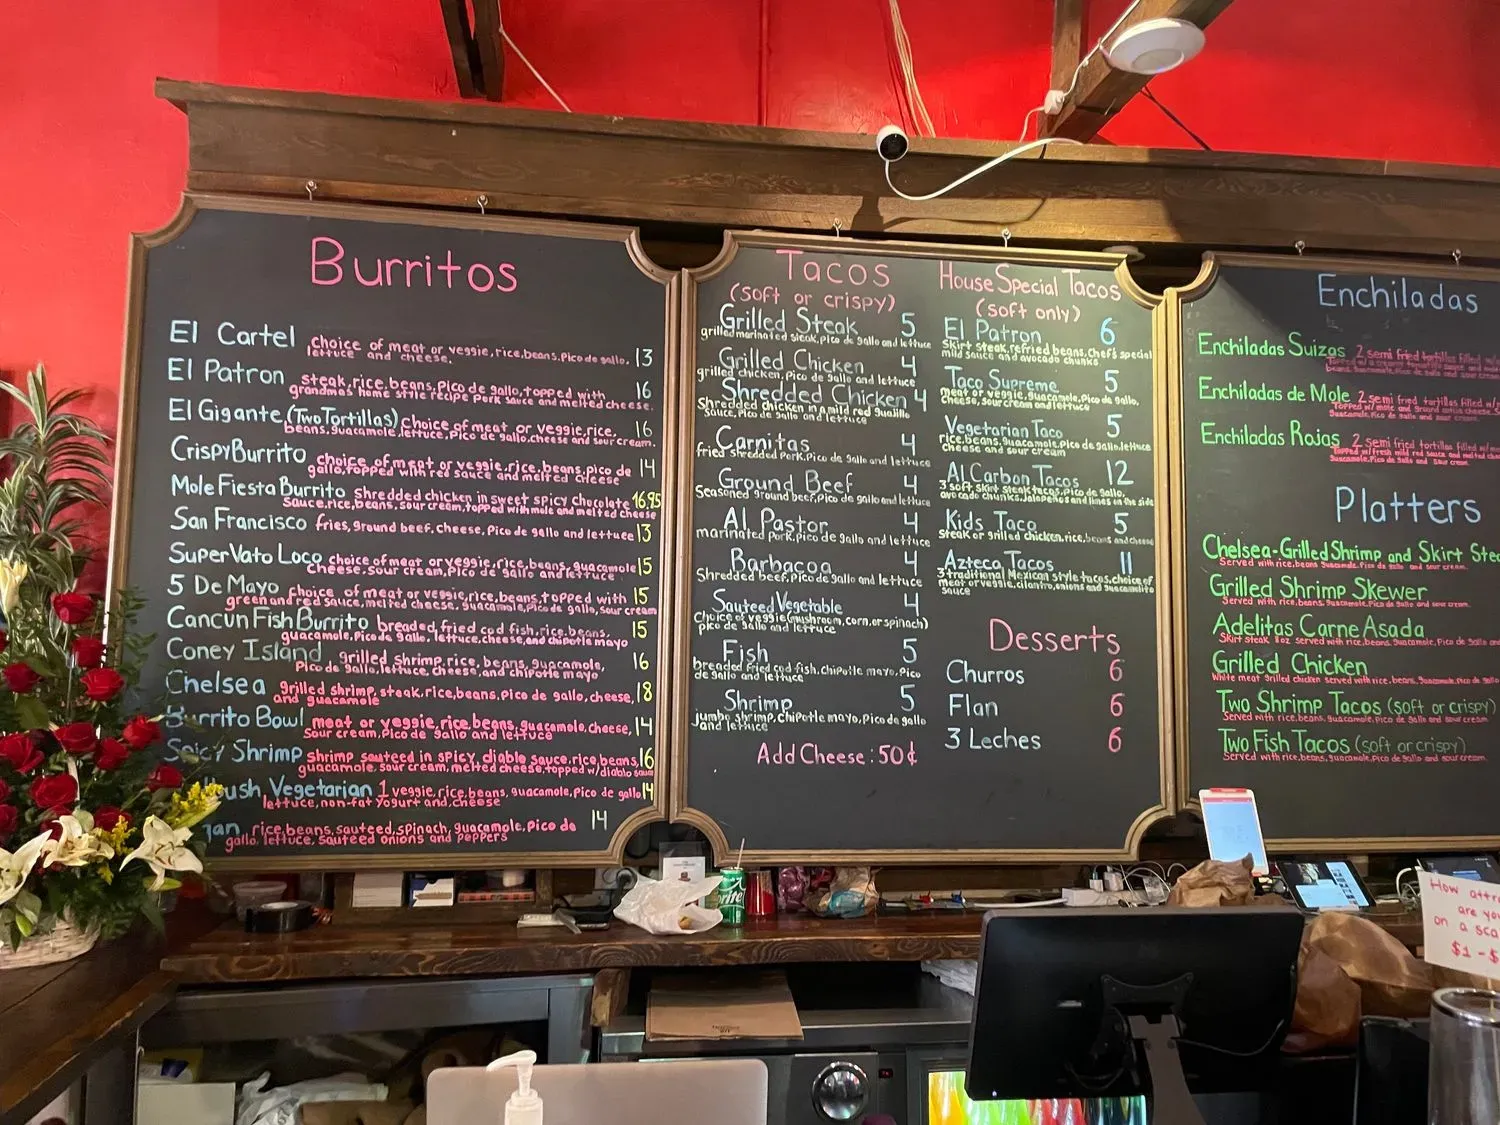 Burritos
El Cartel choice of meat or veggie, rice, beans, Pico de gallo, 13
lettuce and cheese.
El Patron steak, rice, beans, Pico de gallo, topped with 16
grandmas home style recipe Pork sauce and melted cheese.
El Gigante (Two Tortillas) choice of meat or veggie, rice, 16
beans, guacamole, lettuce, Pico de gallo, cheese and sour cream.
Crispy Burrito choice of meat or veggie, rice, beans, pico de 14
gallo, topped with red sauce and melted cheese
Mole Fiesta Burrito shredded chicken in sweet spicy chocolate 16.95
Sauce, rice, beans, sour cream, topped with mole and melted cheese
San Francisco fries, ground beef, cheese, Pico de gallo and lettuce 13
Super Vato Loco choice of meat or veggie, rice, beans, guacamole 15
cheese, sour cream, Pico de gallo and lettuce
5 De Mayo choice of meat or veggie, rice, beans, topped with 15
green and red sauce, melted cheese, guacamole, Pico de gallo, sour cream
Cancun Fish Burrito breaded, fried cod fish, rice, beans, 15
guacamole, Pico de gallo, lettuce, cheese, and chipotle mayo
Coney Island grilled shrimp, rice, beans, guacamole, 16
Pico de gallo, lettuce, cheese, and chipotle mayo
Chelsea grilled shrimp, steak, rice, beans, Pico de gallo, cheese, 18
and guacamole
Burrito Bowl meat or veggie, rice, beans, guacamole, cheese, 14
Sour cream, Pico de gallo and lettuce
Spicy Shrimp shrimp sauteed in spicy, diablo sauce, rice, beans, 16
guacamole, sour cream, melted cheese, topped w/ diablo sauce
ush Vegetarian 1 veggie, rice, beans, guacamole, Pico de gallo 14
lettuce, non-fat yogurt and, cheese
gan rice, beans, sauteed, spinach, guacamole, Pico de 14
gallo, lettuce, sauteed onions and peppers
Tacos
(soft or crispy)
Grilled Steak 5
grilled marinated steak, Pico de gallo and lettuce
Grilled Chicken 4
grilled chicken, Pico de gallo and lettuce
Shredded Chicken 4
Shredded chicken in a mild red guajillo
sauce, Pico de gallo and lettuce
Carnitas 4
fried shredded Pork, Pico de gallo and lettuce
Ground Beef 4
Seasoned ground beef, Pico de gallo and lettuce
Al Pastor 4
marinated Pork, Pico de gallo and lettuce
Barbacoa 4
Shredded beef, Pico de gallo and lettuce
Sauteed Vegetable 4
Choice of veggie (mushroom, corn, or spinach)
Pico de gallo and lettuce
Fish 5
breaded fried cod fish, chipotle mayo, Pico
de gallo and lettuce
Shrimp 5
jumbo shrimp, chipotle mayo, Pico de gallo
and lettuce
Add Cheese: 50¢
House Special Tacos
(soft only)
El Patron 6
Skirt steak, refried beans, chef's special
mild sauce and avocado chunks
Taco Supreme 5
meat or veggie, guacamole, Pico de gallo,
cheese, sour cream and lettuce
Vegetarian Taco 5
rice, beans, guacamole, Pico de gallo, lettuce
cheese and sour cream
Al Carbon Tacos 12
3 soft, skirt steak tacos, Pico de gallo,
avocado chunks, Jalapeños and limes on the side
Kids Taco 5
steak or grilled chicken, rice, beans and cheese
Azteca Tacos 11
3 traditional Mexican style tacos, choice of
meat or veggie, cilantro, onions and guacamolito
sauce
Desserts
Churros 6
Flan 6
3 Leches 6
Enchiladas
Enchiladas Suizas 2 semi fried tortillas filled w/
Enchiladas de Mole 2 semi fried tortillas filled w/
Enchiladas Rojas 2 semi fried tortillas filled w/
Topped w/ fresh mild red sauce and melted
Guacamole, Pico de gallo and sour cream.
Platters
Chelsea-Grilled Shrimp and Skirt
Served with rice, beans, guacamole, Pico de gallo and sour cream.
Grilled Shrimp Skewer
Served with rice, beans, guacamole, Pico de gallo and sour cream.
Adelitas Carne Asada
Skirt steak 8oz served with rice, beans, guacamole, Pico de gallo
Grilled Chicken
White meat grilled chicken served with rice, beans, guacamole, Pico de gallo
Two Shrimp Tacos (soft or crispy)
Served with rice, beans, guacamole, Pico de gallo and sour cream
Two Fish Tacos (soft or crispy)
Served with rice, beans, guacamole, Pico de gallo and sour cream.
Sprite
How
are
on a
$1 - $